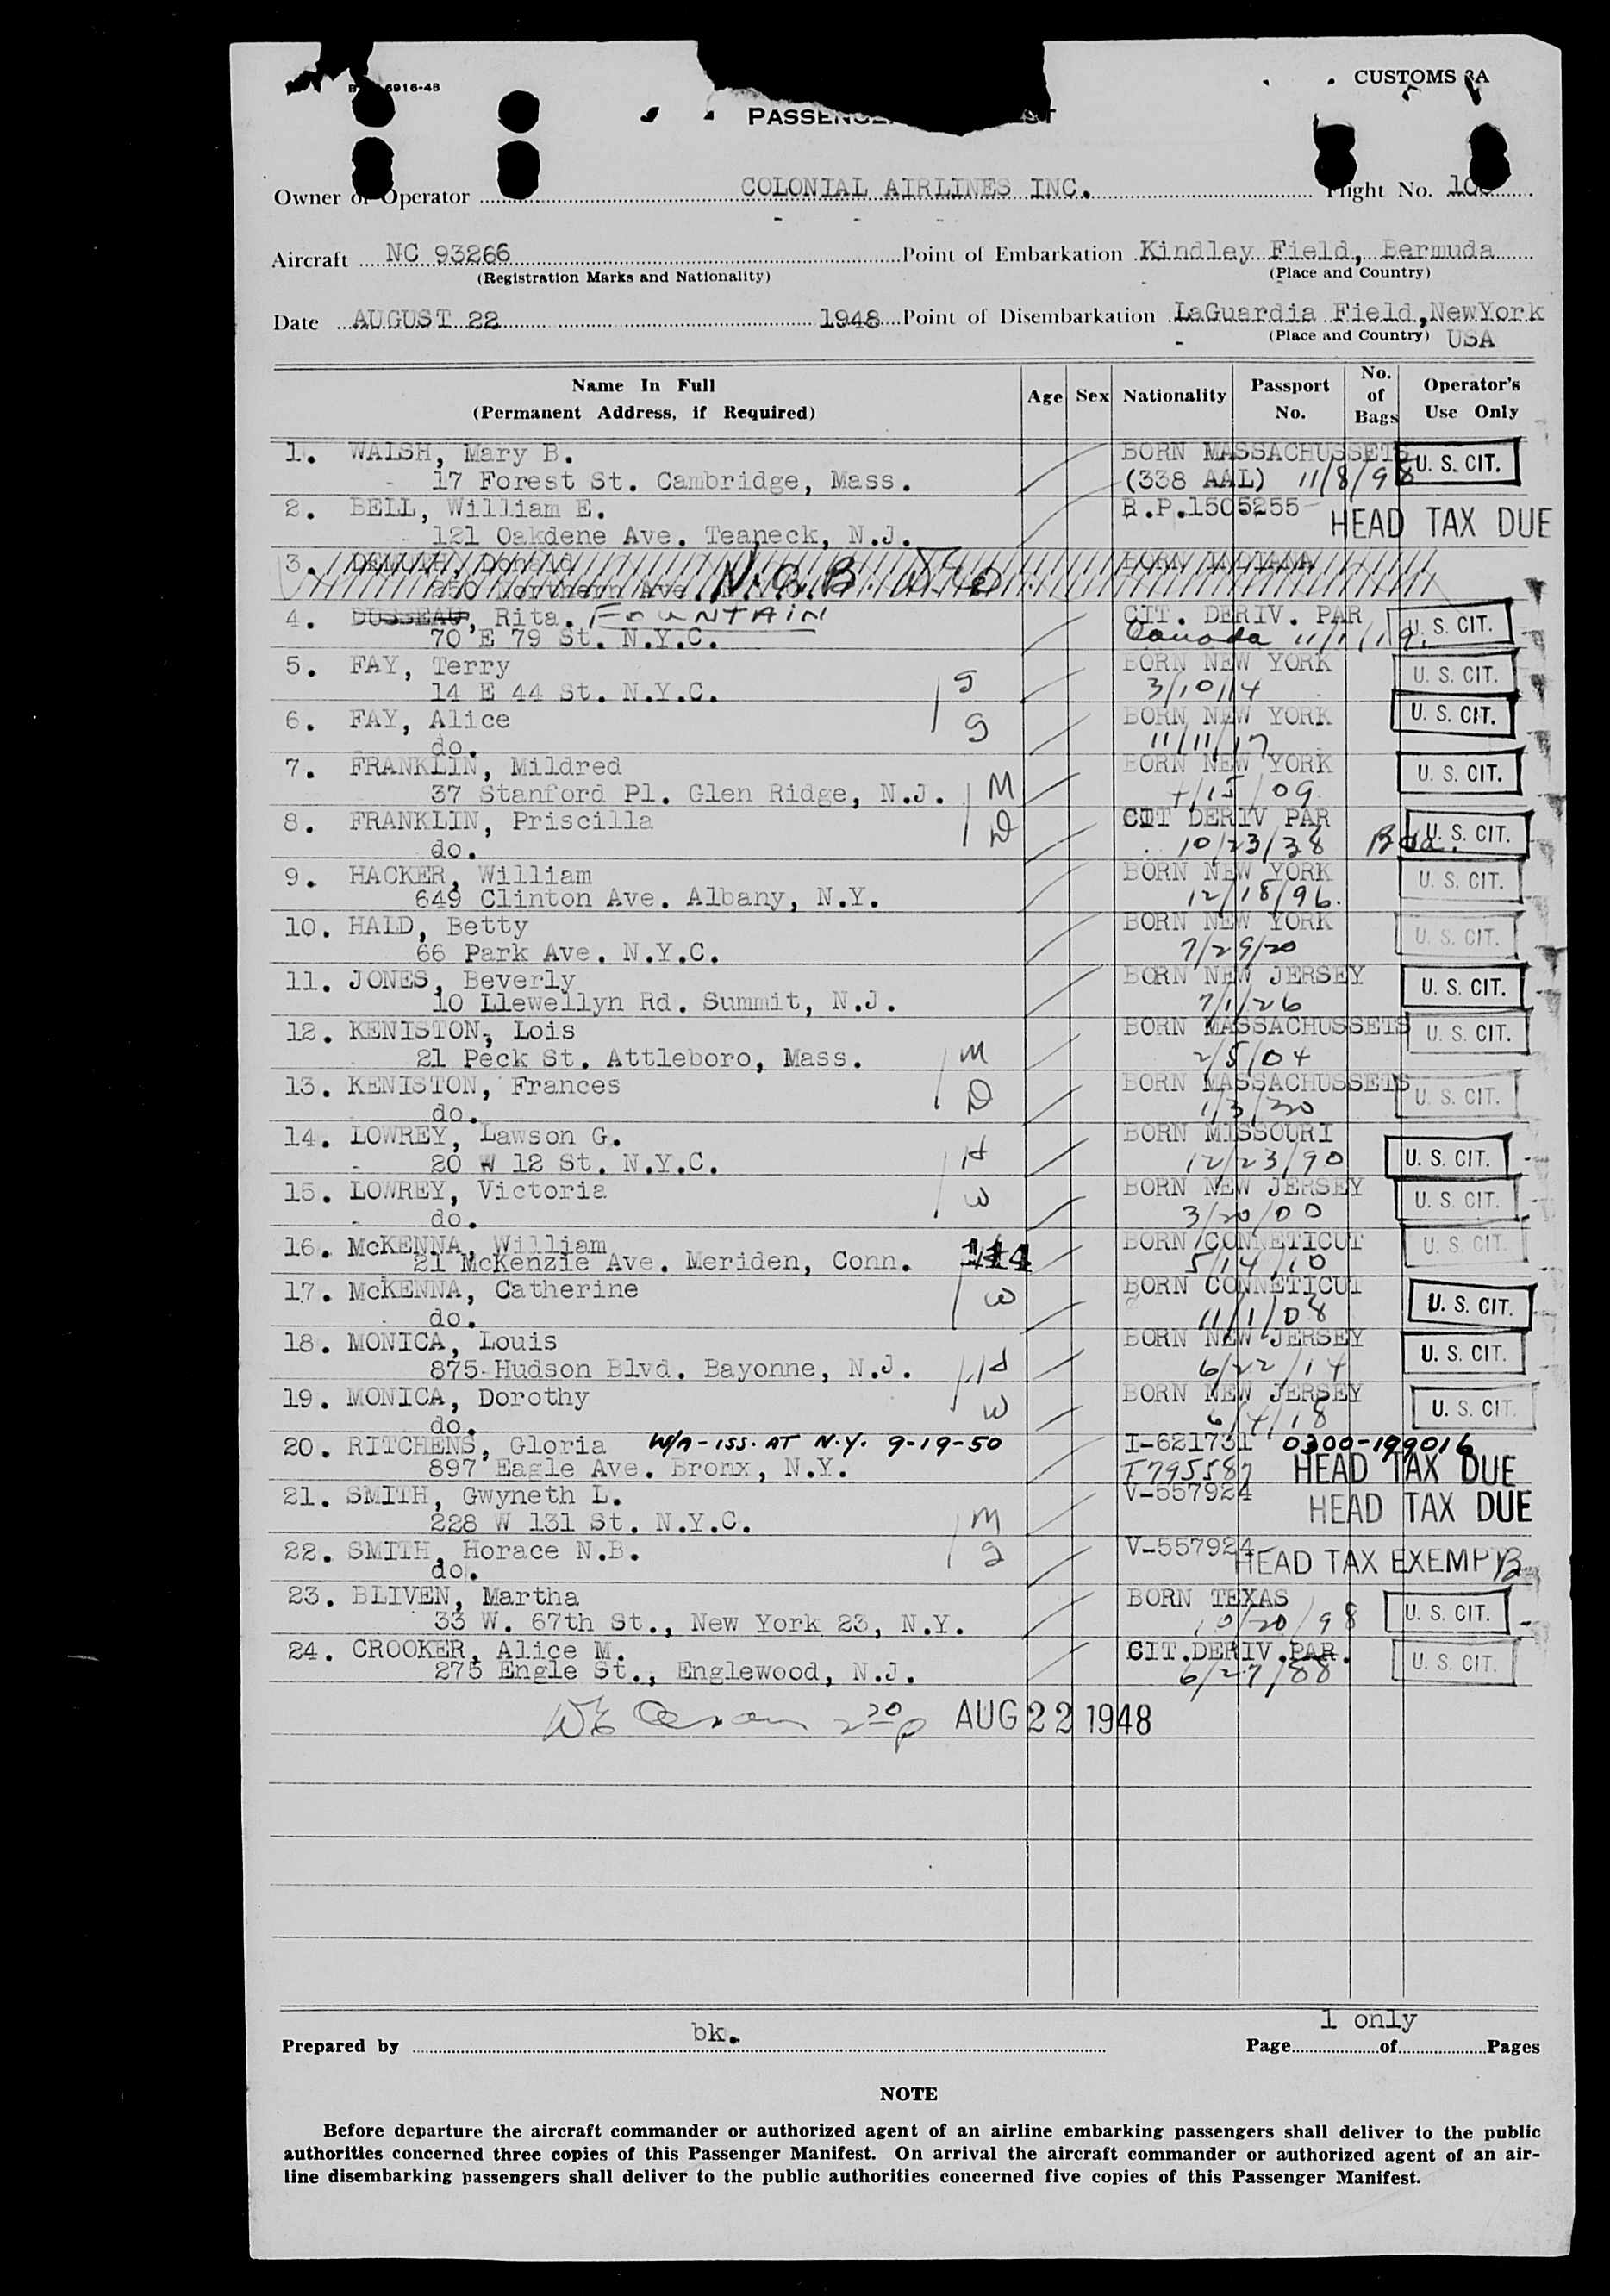 6916-48
CUSTOMS
PASSENGER
Owner or Operator COLONIAL AIRLINES INC. Flight No.
Aircraft NC 93266 Point of Embarkation Kindley Field, Bermuda
(Registration Marks and Nationality) (Place and Country)
Date AUGUST 22 1948 Point of Disembarkation LaGuardia Field, NewYork
(Place and Country) USA
Name In Full (Permanent Address, if Required) Age Sex Nationality Passport No. No. of Bags Operator's Use Only
1. WALSH, Mary B. BORN MASSACHUSSETS U. S. CIT.
17 Forest St. Cambridge, Mass. (338 AAL) 11/8/98
2. BELL, William E. R.P.1505255
121 Oakdene Ave. Teaneck, N.J. HEAD TAX DUE
3. Donald N.O.B.
Northern Ave.
4. DUSSEAU, Rita. FOUNTAIN CIT. DERIV. PAR U. S. CIT.
70 E 79 St. N.Y.C. Canada
5. FAY, Terry BORN NEW YORK U. S. CIT.
14 E 44 St. N.Y.C. S 3/10/14
6. FAY, Alice S BORN NEW YORK U. S. CIT.
do. 11/11/17
7. FRANKLIN, Mildred BORN NEW YORK U. S. CIT.
37 Stanford Pl. Glen Ridge, N.J. M 4/15/09
8. FRANKLIN, Priscilla D CIT DERIV PAR U. S. CIT.
do. 10/23/38 Bda.
9. HACKER, William BORN NEW YORK U. S. CIT.
649 Clinton Ave. Albany, N.Y. 12/18/96.
10. HALD, Betty BORN NEW YORK U. S. CIT.
66 Park Ave. N.Y.C. 7/29/20
11. JONES, Beverly BORN NEW JERSEY U. S. CIT.
10 Llewellyn Rd. Summit, N.J. 7/1/26
12. KENISTON, Lois BORN MASSACHUSSETS U. S. CIT.
21 Peck St. Attleboro, Mass. M 2/5/04
13. KENISTON, Frances D BORN MASSACHUSSETS U. S. CIT.
do. 1/3/30
14. LOWREY, Lawson G. BORN MISSOURI
20 W 12 St. N.Y.C. H 12/23/90 U. S. CIT.
15. LOWREY, Victoria W BORN NEW JERSEY U. S. CIT.
do. 3/20/00
16. McKENNA, William BORN CONNETICUT U. S. CIT.
21 McKenzie Ave. Meriden, Conn. 5/14/10
17. McKENNA, Catherine W BORN CONNETICUT U. S. CIT.
do. 11/1/08
18. MONICA, Louis BORN NEW JERSEY U. S. CIT.
875 Hudson Blvd. Bayonne, N.J. H 6/22/14
19. MONICA, Dorothy W BORN NEW JERSEY U. S. CIT.
do. 6/4/18
20. RITCHENS, Gloria W/A-ISS. AT N.Y. 9-19-50 I-621731 0300-199016
897 Eagle Ave. Bronx, N.Y. T795587 HEAD TAX DUE
21. SMITH, Gwyneth L. V-557924 HEAD TAX DUE
228 W 131 St. N.Y.C. M
22. SMITH, Horace N.B. S V-557924 HEAD TAX EXEMPT
do.
23. BLIVEN, Martha BORN TEXAS U. S. CIT.
33 W. 67th St., New York 23, N.Y. 10/20/98
24. CROOKER, Alice M. CIT.DERIV.PAR. U. S. CIT.
275 Engle St., Englewood, N.J. 6/27/88
AUG 22 1948
Prepared by bk. Page 1 only of Pages
NOTE
Before departure the aircraft commander or authorized agent of an airline embarking passengers shall deliver to the public
authorities concerned three copies of this Passenger Manifest. On arrival the aircraft commander or authorized agent of an air-
line disembarking passengers shall deliver to the public authorities concerned five copies of this Passenger Manifest.